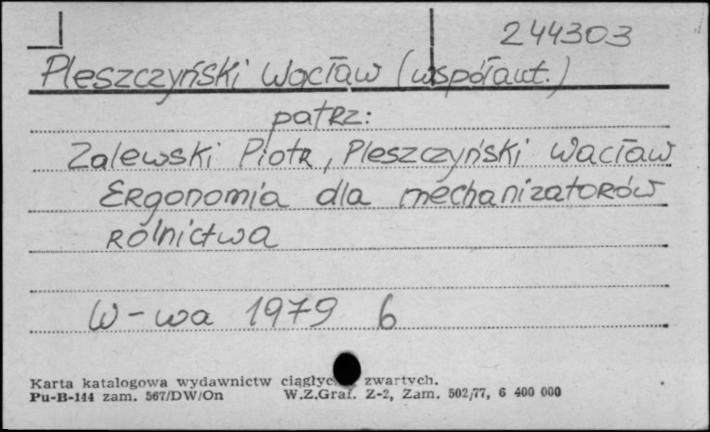 244303
Pleszczyński Wacław (współaut.)
patrz:
Zalewski Piotr, Pleszczyński Wacław
Ergonomia dla mechanizatorów
rolnictwa
W-wa 1979 6
Karta katalogowa wydawnictw zwartych.
Pu-B-144 zam. 567/DW/On W.Z.Graf. Z-2, Zam. 502/77, 6 400 000